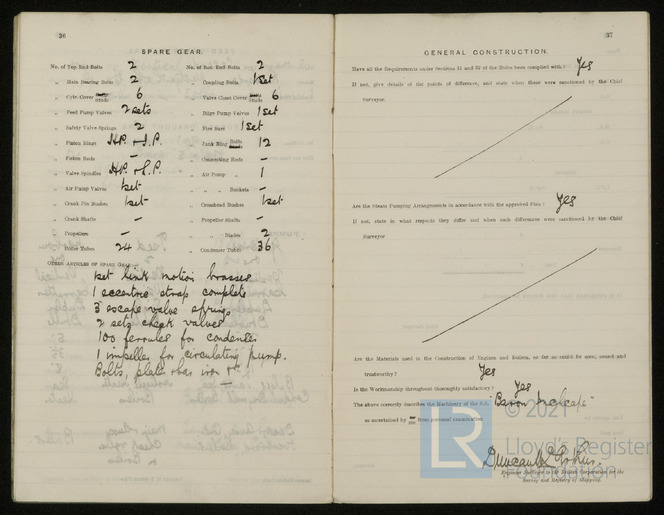 36
SPARE GEAR.
No. of Top End Bolts 2 No. of Bot. End Bolts 2
„ Main Bearing Bolts 2 „ Coupling Bolts 1 set
„ Cylr. Cover Studs 6 „ Valve Chest Cover Studs 6
„ Feed Pump Valves 2 sets „ Bilge Pump Valves 1 set
„ Safety Valve Springs 2 „ Fire Bars 1 set
„ Piston Rings H.P. & I.P. „ Junk Ring Bolts 12
„ Piston Rods — „ Connecting Rods —
„ Valve Spindles H.P. & I.P. „ Air Pump „ 1
„ Air Pump Valves 1 set „ „ Buckets —
„ Crank Pin Bushes 1 set „ Crosshead Bushes 1 set
„ Crank Shafts — „ Propeller Shafts —
„ Propellers — „ „ Blades 2
„ Boiler Tubes 24 „ Condenser Tubes 36
OTHER ARTICLES OF SPARE GEAR:—
1 set link motion brasses
1 eccentric strap complete
3 escape valve springs
2 sets check valves
100 ferrules for condenser
1 impeller for circulating pump.
Bolts, plate & bar iron &c.
37
GENERAL CONSTRUCTION.
Have all the Requirements under Sections 31 and 32 of the Rules been complied with? Yes
If not, give details of the points of difference, and state when these were sanctioned by the Chief
Surveyor.
Are the Steam Pumping Arrangements in accordance with the approved Plan? Yes
If not, state in what respects they differ and when such differences were sanctioned by the Chief
Surveyor
Are the Materials used in the Construction of Engines and Boilers, so far as could be seen, sound and
trustworthy? Yes
Is the Workmanship throughout thoroughly satisfactory? Yes
The above correctly describes the Machinery of the S.S. "Baron Inchcape"
as ascertained by from personal examination
© 2021
LR Lloyd's Register
Foundation
Engineer Surveyor to the British Corporation for the
Survey and Registry of Shipping.